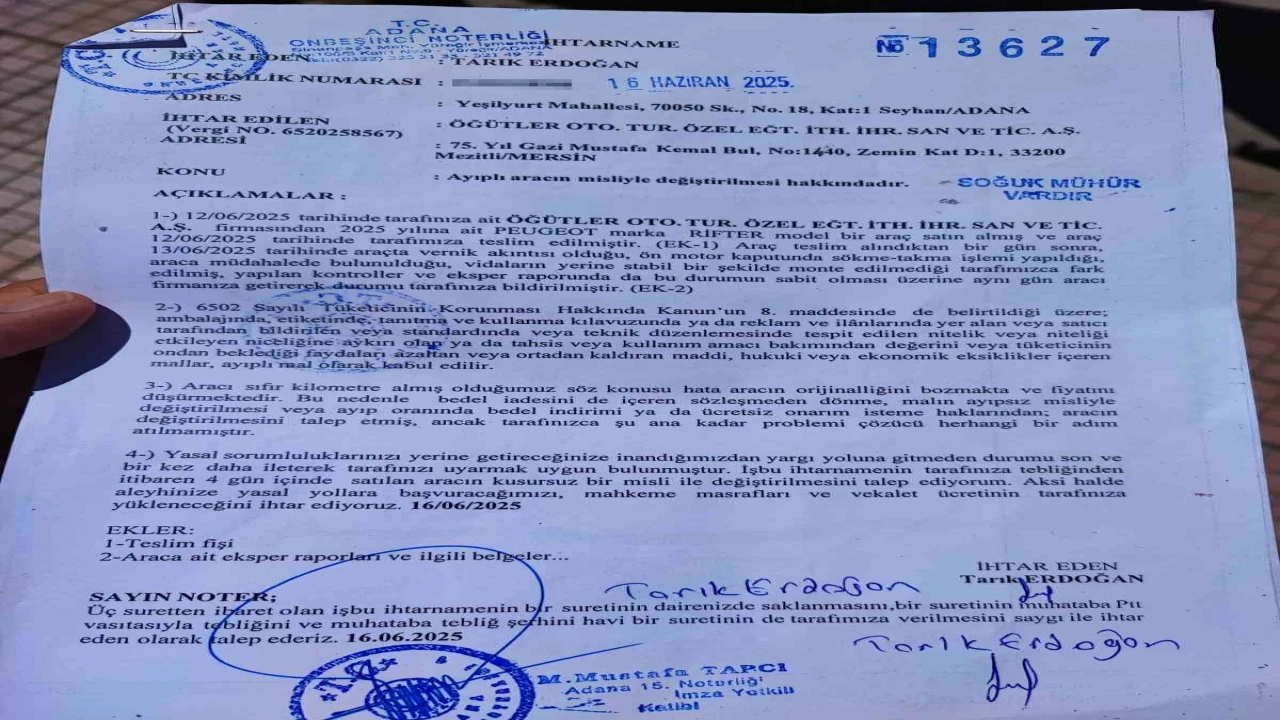 T.C.
ADANA
ONBEŞİNCİ NOTERLİĞİ
İHTARNAME
No 13627
İHTAR EDEN : TARIK ERDOĞAN
TC KİMLİK NUMARASI :
16 HAZİRAN 2025.
ADRES : Yeşilyurt Mahallesi, 70050 Sk., No. 18, Kat:1 Seyhan/ADANA
İHTAR EDİLEN : ÖĞÜTLER OTO. TUR. ÖZEL EĞT. İTH. İHR. SAN VE TİC. A.Ş.
(Vergi NO. 6520258567)
ADRESİ : 75. Yıl Gazi Mustafa Kemal Bul, No:1440, Zemin Kat D:1, 33200
Mezitli/MERSİN
KONU : Ayıplı aracın misliyle değiştirilmesi hakkındadır.
SOĞUK MÜHÜR
VARDIR
AÇIKLAMALAR :
1-) 12/06/2025 tarihinde tarafınıza ait ÖĞÜTLER OTO. TUR. ÖZEL EĞT. İTH. İHR. SAN VE TİC.
A.Ş. firmasından 2025 yılına ait PEUGEOT marka RİFTER model bir araç satın almış ve araç
12/06/2025 tarihinde tarafımıza teslim edilmiştir. (EK-1) Araç teslim alındıktan bir gün sonra,
13/06/2025 tarihinde araçta vernik akıntısı olduğu, ön motor kaputunda sökme-takma işlemi yapıldığı,
araca müdahalede bulunulduğu, vidaların yerine stabil bir şekilde monte edilmediği tarafımızca fark
edilmiş, yapılan kontroller ve eksper raporunda da bu durumun sabit olması üzerine aynı gün aracı
firmanıza getirerek durumu tarafınıza bildirilmiştir. (EK-2)
2-) 6502 Sayılı Tüketicinin Korunması Hakkında Kanun'un 8. maddesinde de belirtildiği üzere;
ambalajında, etiketinde, tanıtma ve kullanma kılavuzunda ya da reklam ve ilânlarında yer alan veya satıcı
tarafından bildirilen veya standardında veya teknik düzenlemesinde tespit edilen nitelik veya niteliği
etkileyen niceliğine aykırı olan ya da tahsis veya kullanım amacı bakımından değerini veya tüketicinin
ondan beklediği faydaları azaltan veya ortadan kaldıran maddi, hukuki veya ekonomik eksiklikler içeren
mallar, ayıplı mal olarak kabul edilir.
3-) Aracı sıfır kilometre almış olduğumuz söz konusu hata aracın orijinalliğini bozmakta ve fiyatını
düşürmektedir. Bu nedenle bedel iadesini de içeren sözleşmeden dönme, malın ayıpsız misliyle
değiştirilmesi veya ayıp oranında bedel indirimi ya da ücretsiz onarım isteme haklarından; aracın
değiştirilmesini talep etmiş, ancak tarafınızca şu ana kadar problemi çözücü herhangi bir adım
atılmamıştır.
4-) Yasal sorumluluklarınızı yerine getireceğinize inandığımızdan yargı yoluna gitmeden durumu son ve
bir kez daha ileterek tarafınızı uyarmak uygun bulunmuştur. İşbu ihtarnamenin tarafınıza tebliğinden
itibaren 4 gün içinde satılan aracın kusursuz bir misli ile değiştirilmesini talep ediyorum. Aksi halde
aleyhinize yasal yollara başvuracağımızı, mahkeme masrafları ve vekalet ücretinin tarafınıza
yükleneceğini ihtar ediyoruz. 16/06/2025
EKLER:
1-Teslim fişi
2-Araca ait eksper raporları ve ilgili belgeler...
İHTAR EDEN
Tarık ERDOĞAN
Tarık Erdoğan
SAYIN NOTER;
Üç suretten ibaret olan işbu ihtarnamenin bir suretinin dairenizde saklanmasını,bir suretinin muhataba Ptt
vasıtasıyla tebliğini ve muhataba tebliğ şerhini havi bir suretinin de tarafımıza verilmesini saygı ile ihtar
eden olarak talep ederiz. 16.06.2025
Tarık Erdoğan
M.Mustafa TAPCI
Adana 15. Noterliği
İmza Yetkili
Katibi